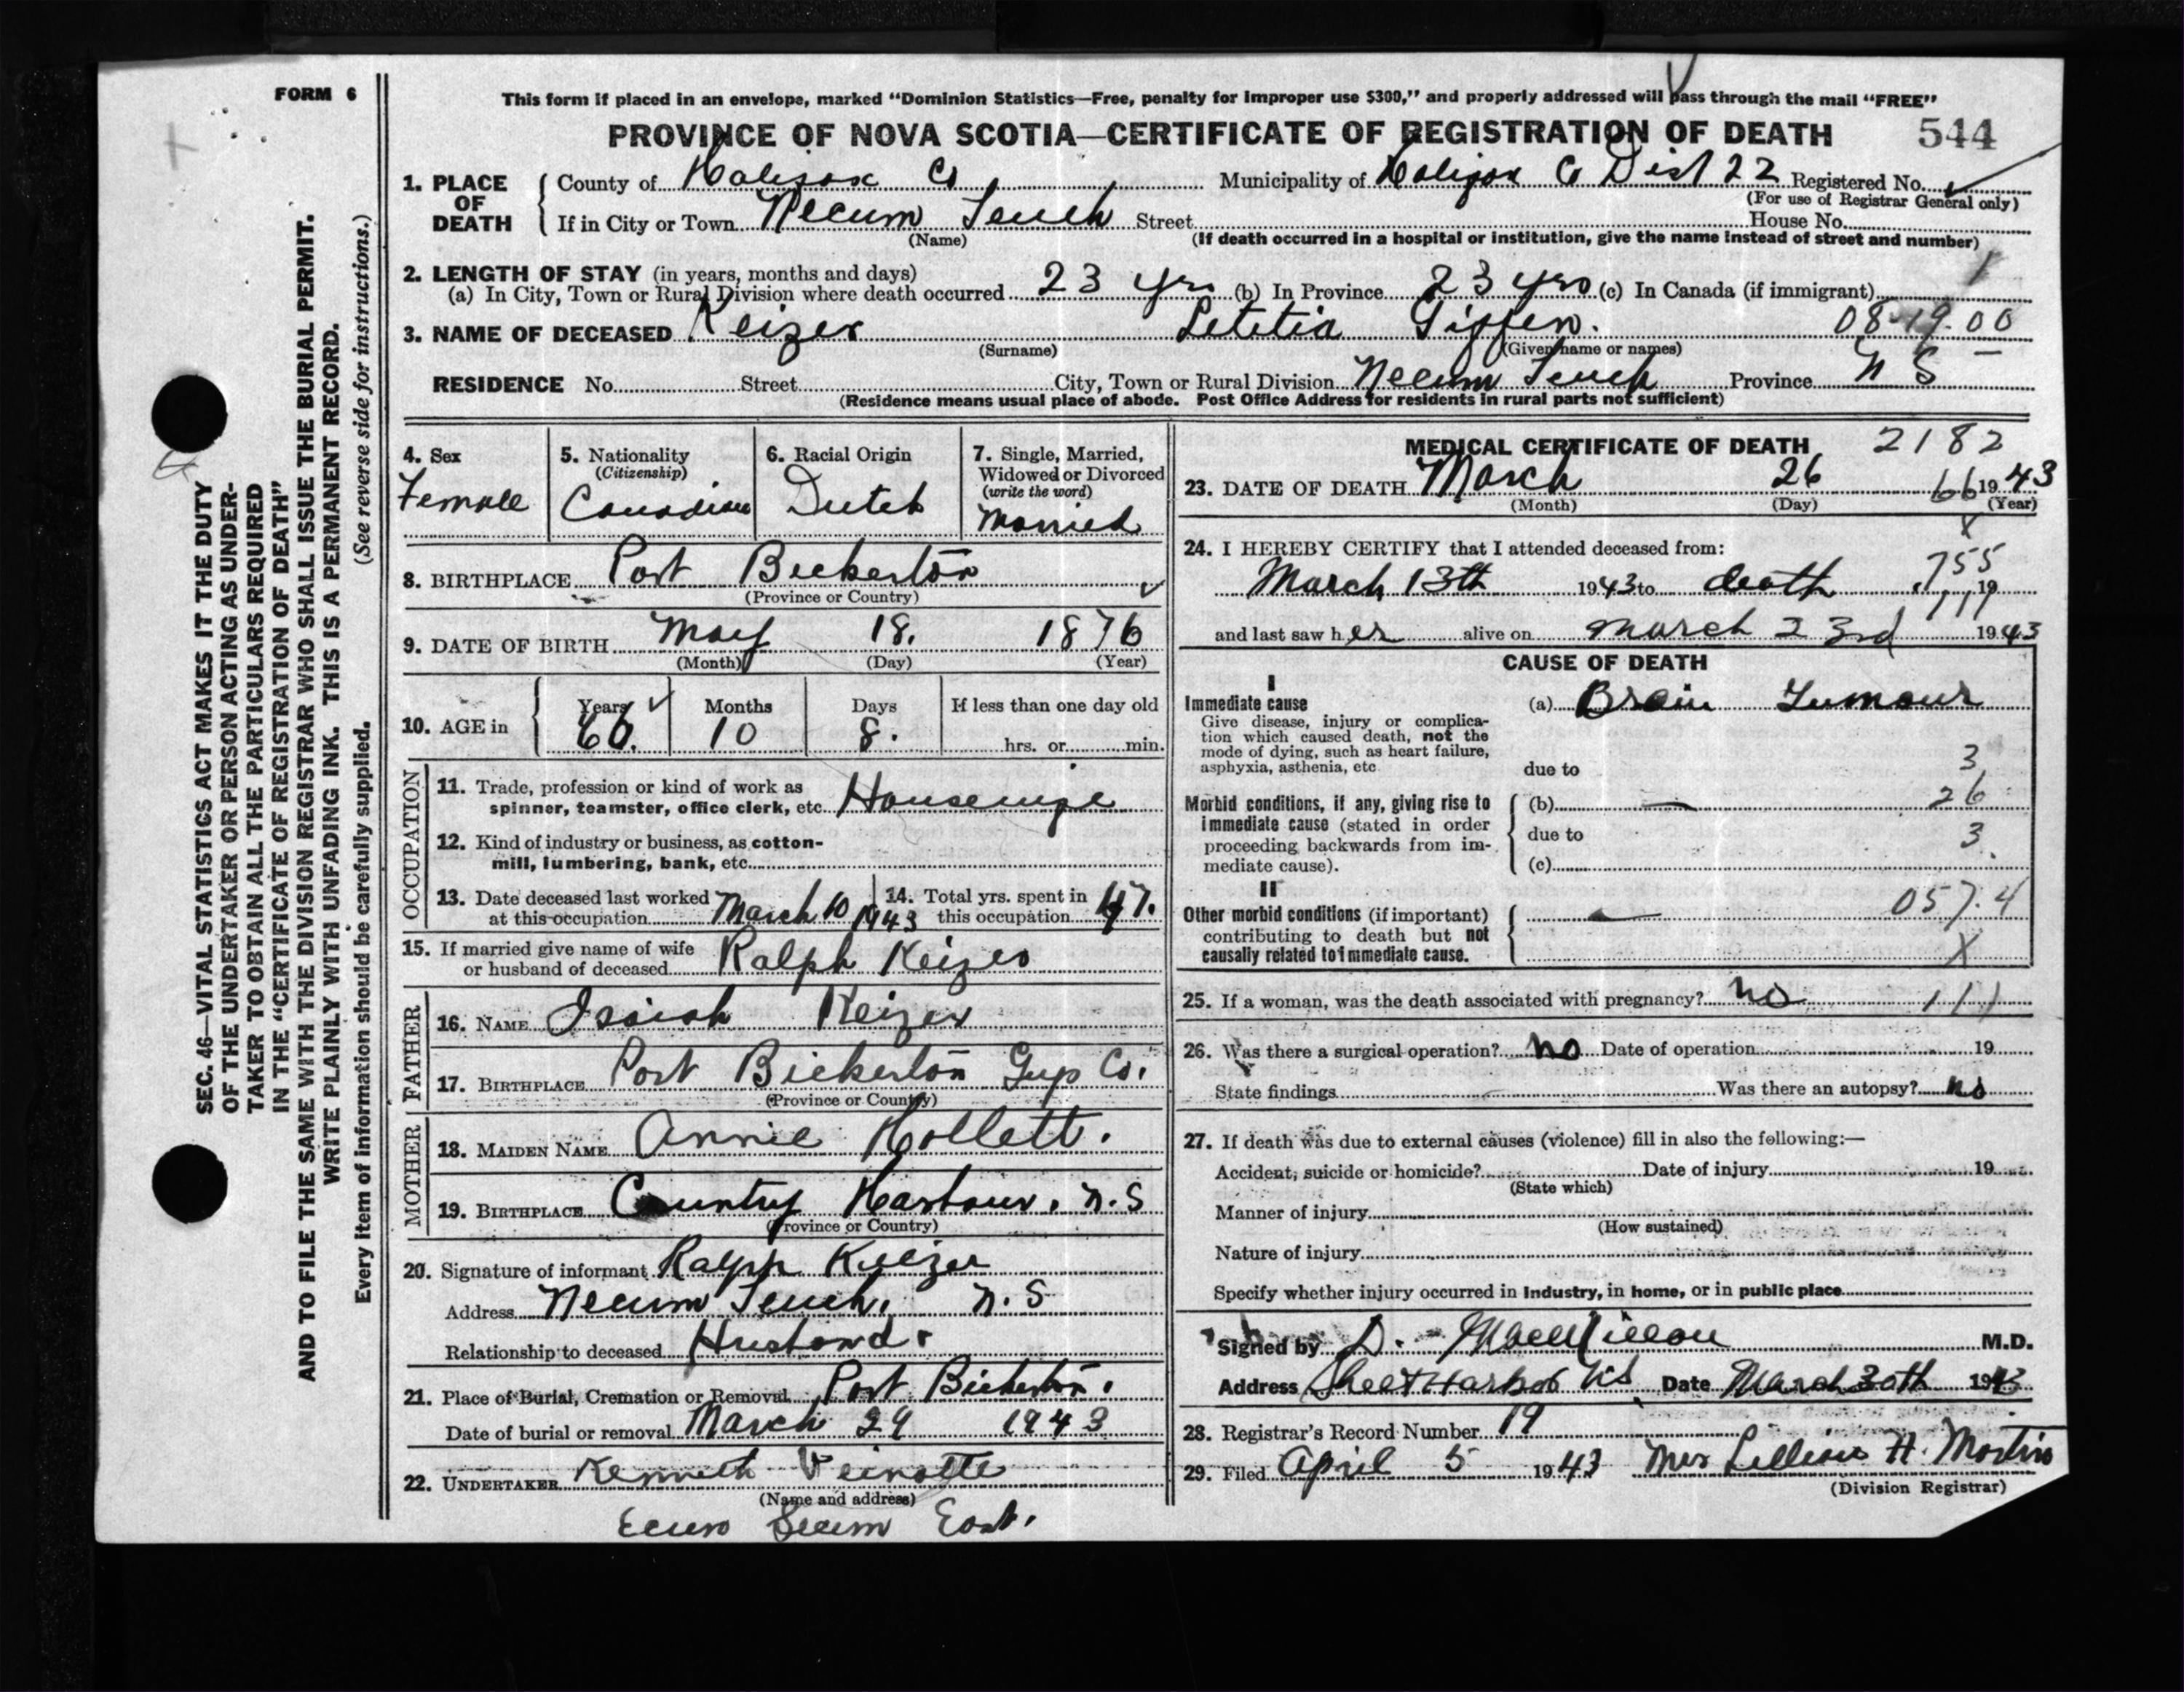 FORM 6
This form if placed in an envelope, marked “Dominion Statistics—Free, penalty for improper use $300,” and properly addressed will pass through the mail “FREE”
PROVINCE OF NOVA SCOTIA—CERTIFICATE OF REGISTRATION OF DEATH 544
1. PLACE OF DEATH
County of Halifax Co Municipality of Halifax Co Dist 22 Registered No.
(For use of Registrar General only)
If in City or Town Necum Teuch Street House No.
(Name) (If death occurred in a hospital or institution, give the name instead of street and number)
2. LENGTH OF STAY (in years, months and days)
(a) In City, Town or Rural Division where death occurred 23 yrs (b) In Province 23 yrs (c) In Canada (if immigrant)
3. NAME OF DECEASED Keizer Letetia Giffen. 08-19.00
(Surname) (Given name or names)
RESIDENCE No. Street City, Town or Rural Division Necum Teuch Province N S
(Residence means usual place of abode. Post Office Address for residents in rural parts not sufficient)
4. Sex
Female
5. Nationality
(Citizenship)
Canadian
6. Racial Origin
Dutch
7. Single, Married,
Widowed or Divorced
(write the word)
Married
8. BIRTHPLACE Port Bickerton
(Province or Country)
9. DATE OF BIRTH May 18. 1876
(Month) (Day) (Year)
10. AGE in
Years Months Days If less than one day old
66. 10 8. hrs. or min.
OCCUPATION
11. Trade, profession or kind of work as
spinner, teamster, office clerk, etc. Housewife
12. Kind of industry or business, as cotton-
mill, lumbering, bank, etc.
13. Date deceased last worked
at this occupation March 10 1943
14. Total yrs. spent in
this occupation 47.
15. If married give name of wife
or husband of deceased Ralph Keizer
FATHER
16. NAME Isiah Keizer
17. BIRTHPLACE Port Bickerton Guy Co.
(Province or Country)
MOTHER
18. MAIDEN NAME Annie Hollett.
19. BIRTHPLACE Country Harbour, N.S
(Province or Country)
20. Signature of informant Ralph Keizer
Address Necum Teuch, N.S
Relationship to deceased Husband.
21. Place of Burial, Cremation or Removal Port Bickerton.
Date of burial or removal March 29 1943
22. UNDERTAKER Kenneth Veinotte
(Name and address)
Ecum Secum East.
MEDICAL CERTIFICATE OF DEATH 2182
23. DATE OF DEATH March 26 66 1943
(Month) (Day) (Year)
X
24. I HEREBY CERTIFY that I attended deceased from:
755
March 13th 1943 to death 19
111
and last saw her alive on March 23rd 1943
CAUSE OF DEATH
I
Immediate cause
Give disease, injury or complica-
tion which caused death, not the
mode of dying, such as heart failure,
asphyxia, asthenia, etc
(a) Brain Tumour
due to 3
Morbid conditions, if any, giving rise to
immediate cause (stated in order
proceeding backwards from im-
mediate cause).
(b) — 26
due to 3
(c)
II
Other morbid conditions (if important)
contributing to death but not
causally related to immediate cause.
— 057.4
X
25. If a woman, was the death associated with pregnancy? no 111
26. Was there a surgical operation? no Date of operation 19
State findings Was there an autopsy? no
27. If death was due to external causes (violence) fill in also the following:—
Accident, suicide or homicide? Date of injury 19
(State which)
Manner of injury
(How sustained)
Nature of injury
Specify whether injury occurred in industry, in home, or in public place
Signed by D. MacMillan M.D.
Address Sheet Harbor NS Date March 30th 1943
28. Registrar's Record Number 19
29. Filed April 5 1943 Mrs Lillian H. Martin
(Division Registrar)
SEC. 46—VITAL STATISTICS ACT MAKES IT THE DUTY
OF THE UNDERTAKER OR PERSON ACTING AS UNDER-
TAKER TO OBTAIN ALL THE PARTICULARS REQUIRED
IN THE “CERTIFICATE OF REGISTRATION OF DEATH”
AND TO FILE THE SAME WITH THE DIVISION REGISTRAR WHO SHALL ISSUE THE BURIAL PERMIT.
WRITE PLAINLY WITH UNFADING INK. THIS IS A PERMANENT RECORD.
Every item of information should be carefully supplied. (See reverse side for instructions.)